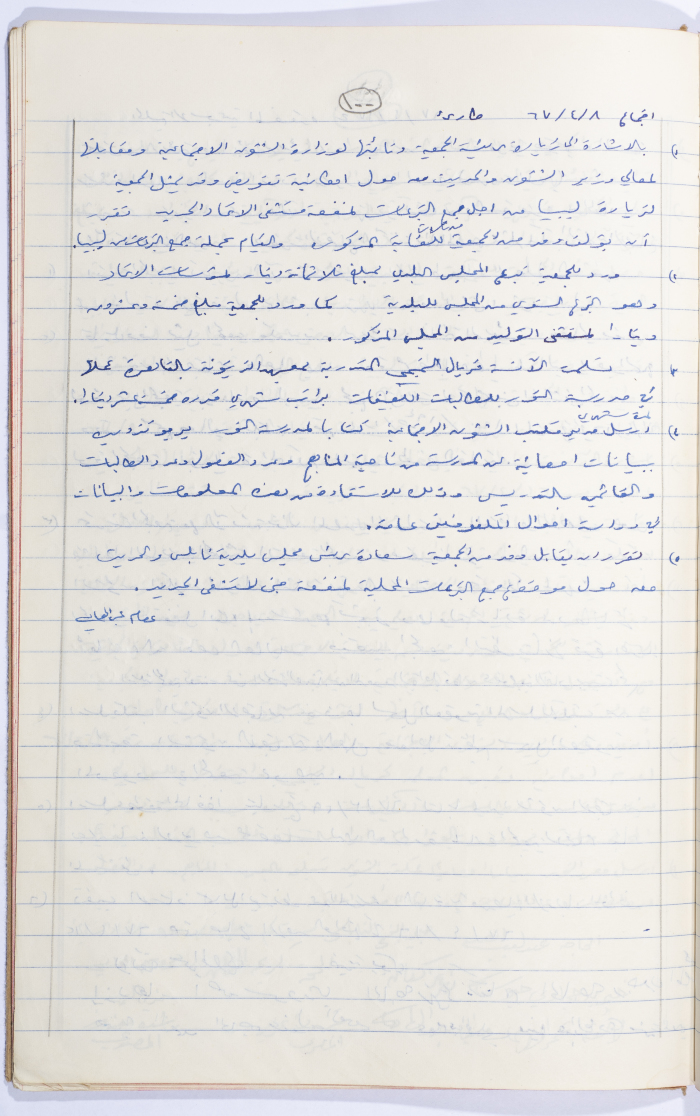 ١٠٠
اجتماع ٦٧/٢/٨ طارئ
١) بالاشارة الى زيارة رئيسة الجمعية ونائبتها لوزارة الشئون الاجتماعية ومقابلتها
لمعالي وزير الشئون والحديث معه حول امكانية تفويض وفد يمثل الجمعية
لزيارة ليبيا من اجل جمع التبرعات لمنفعة مستشفى الاتحاد الجديد تقرر
أن يؤلف وفد من الجمعية للغاية المذكورة والقيام بحملة جمع التبرعات من ليبيا.
٢) ورد للجمعية تبرع المجلس البلدي بمبلغ ثلاثمائة دينار لمؤسسات الاتحاد
وهو التبرع السنوي من المجلس للبلدية كما ورد للجمعية مبلغ خمسة وعشرون
دينارا لمستشفى التوليد من المجلس المذكور.
٣) تسلمت الآنسة فريال التميمي المتدربة بمعهد الزيتونة بالقاهرة عملا
في مدرسة النور للطالبات الكفيفات براتب شهري قدره خمسة عشر دينارا.
لمدة شهري
٤) ارسل مدير مكتب الشؤون الاجتماعية كتابا لمدرسة النور يرجو تزويده
ببيانات احصائية عن المدرسة من ناحية المناهج وعدد الفصول وعدد الطالبات
والقائمين بالتدريس وذلك للاستفادة من هذه المعلومات والبيانات
في دراسة احوال المكفوفين عامة.
٥) تقرر ان يقابل وفد من الجمعية سعادة رئيس مجلس بلدية نابلس والحديث
معه حول موضوع جمع التبرعات المحلية لمنفعة مبنى المستشفى الجديد.
عصام عبد الهادي